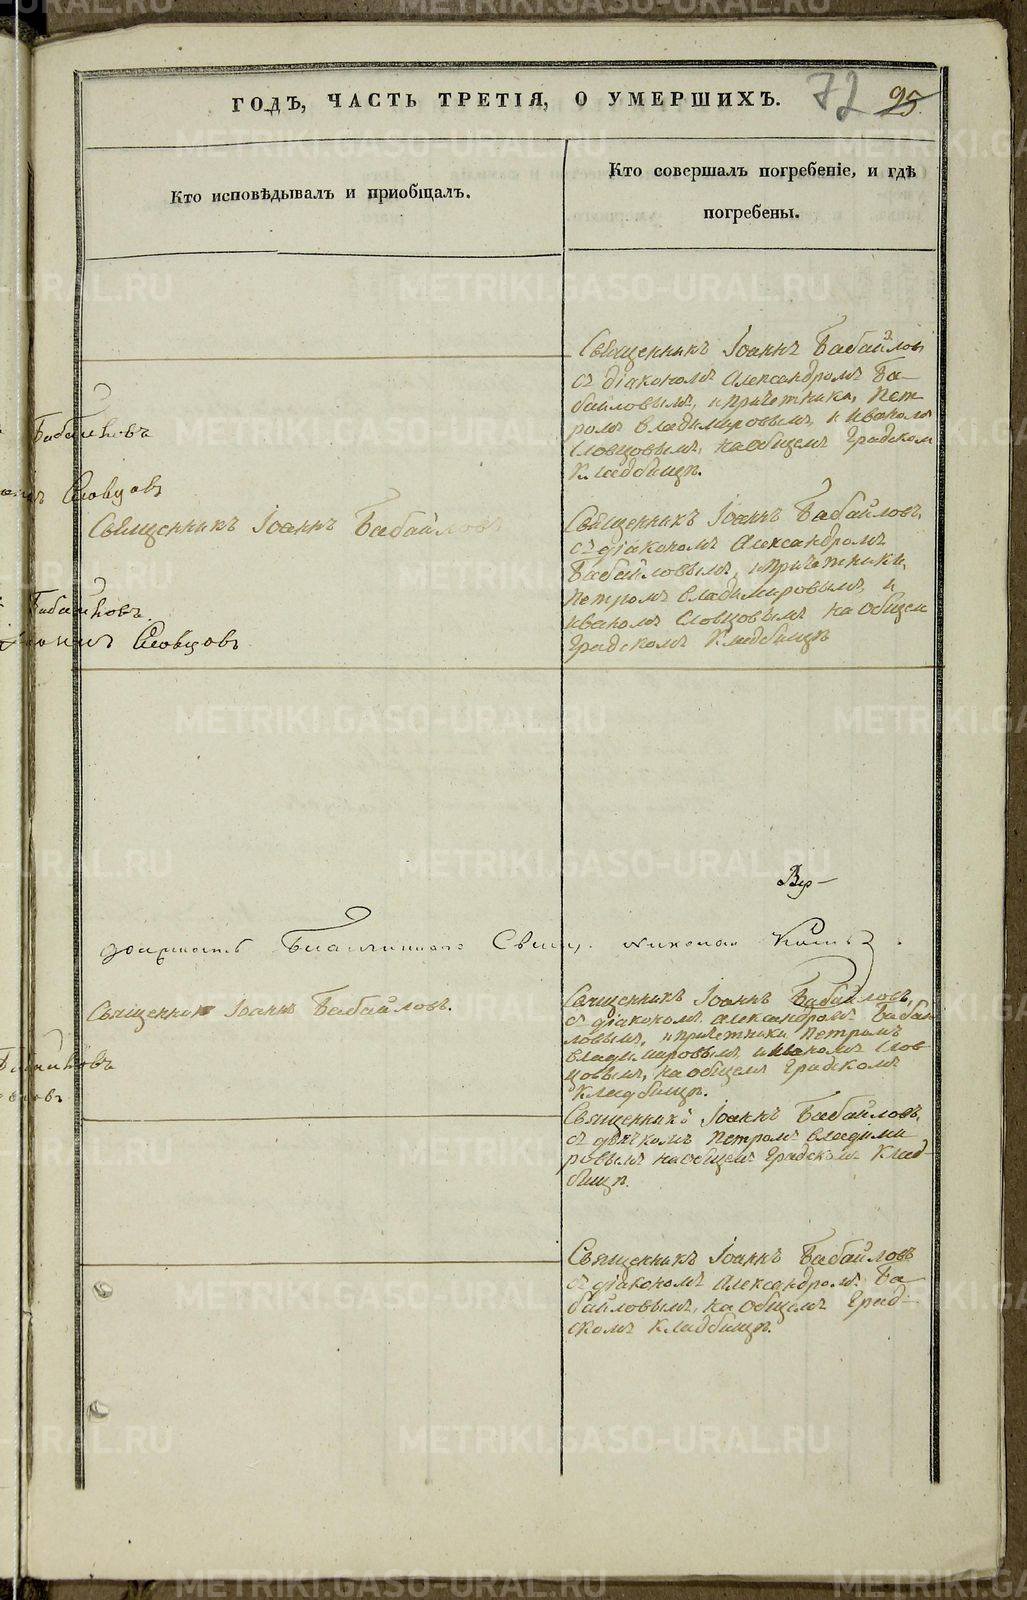 ГОДЪ, ЧАСТЬ ТРЕТІЯ, О УМЕРШИХЪ.
72 95
Кто исповѣдывалъ и пріобщалъ.
Кто совершалъ погребеніе, и гдѣ
погребены.
Священникъ Іоаннъ Бабайлов
съ діакономъ Александромъ Ба-
байловымъ, и причетника, Пет-
ромъ владимировымъ, и Иваномъ
Словцовымъ, на общемъ Градском
Кладбищѣ.
Словцовъ
Священникъ Іоаннъ Бабайловъ
Священникъ Іоаннъ Бабайловъ,
съ діакономъ Александромъ
Бабайловымъ, и причетники,
Петромъ владимировымъ, и
иваномъ Словцовымъ на общем
Градскомъ Кладбищѣ
Словцовъ
должность Свящ. Николай
Священникъ Іоаннъ Бабайловъ.
Священникъ Іоаннъ Бабайловъ,
съ діакономъ Александромъ Бабай
ловымъ, и причетники Петромъ
владимировымъ и иваномъ Слов
цовымъ, на общемъ Градскомъ
Кладбищѣ.
Священникъ Іоаннъ Бабайловъ,
съ дьячкомъ Петромъ владими
ровымъ на общемъ Градскомъ Клад-
бищѣ.
Священникъ Іоаннъ Бабайловъ
съ діакономъ Александромъ Ба-
байловымъ, на общемъ Град-
скомъ кладбищѣ.
METRIKI.GASO-URAL.RU